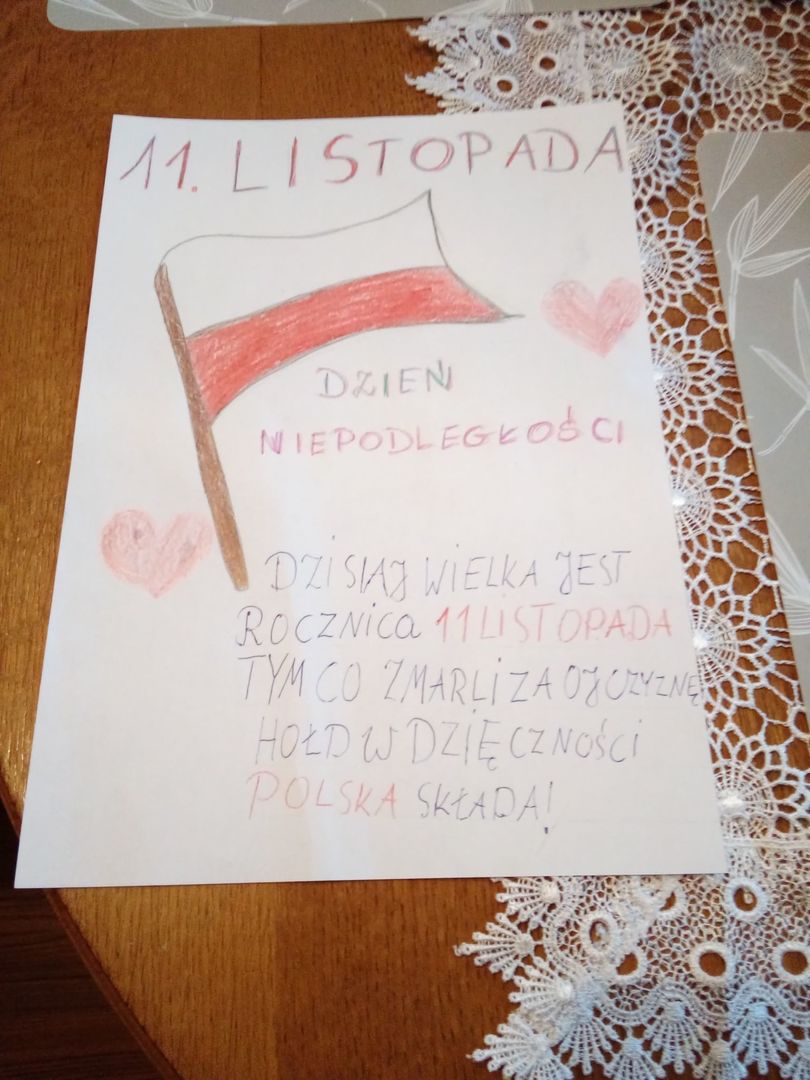 11. LISTOPADA
DZIEŃ
NIEPODLEGŁOŚCI
DZISIAJ WIELKA JEST
ROCZNICA 11 LISTOPADA
TYM CO ZMARLI ZA OJCZYZNĘ
HOŁD W DZIĘCZNOŚCI
POLSKA SKŁADA!